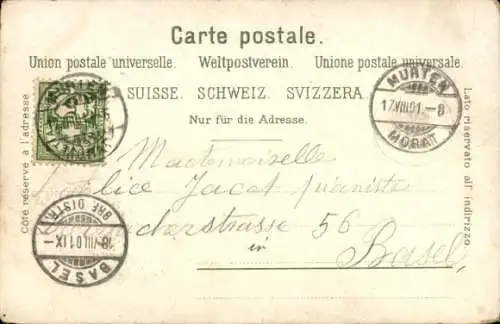 Carte postale.
Union postale universelle. Weltpostverein. Unione postale universale.
SUISSE. SCHWEIZ. SVIZZERA.
Nur für die Adresse.
Côté réservé à l'adresse
Lato riservato all' indirizzo.
MURTEN
17.VIII.01.-8
MORAT
Mademoiselle
Alice Jacot pianiste
56
in
Basel
BASEL
18.VIII.01.IX-
BRF. DISTR.